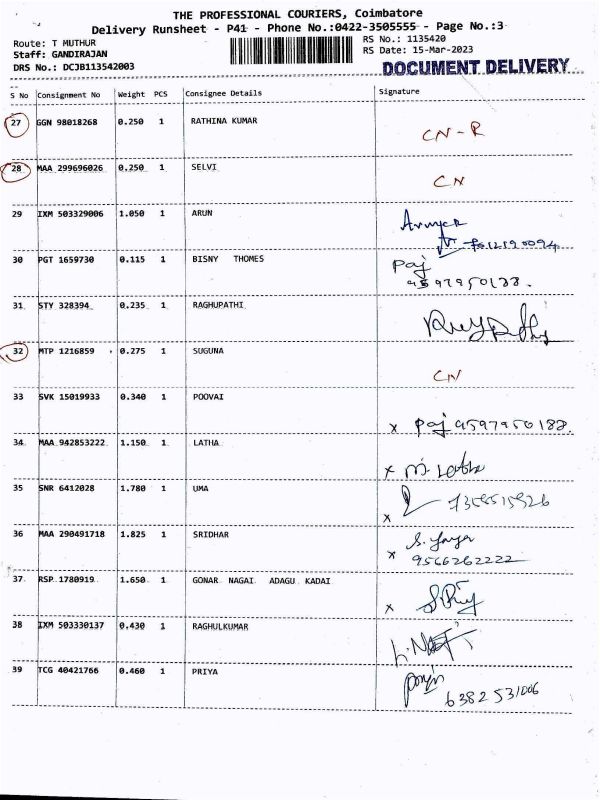 THE PROFESSIONAL COURIERS, Coimbatore
Delivery Runsheet - P41 - Phone No.:0422-3505555 - Page No.:3
Route: T MUTHUR
RS No.: 1135420
Staff: GANDIRAJAN
RS Date: 15-Mar-2023
DRS No.: DCJB113542003
DOCUMENT DELIVERY
S No Consignment No Weight PCS Consignee Details Signature
27 GGN 98018268 0.250 1 RATHINA KUMAR CN-R
28 MAA 299696026 0.250 1 SELVI CN
29 IXM 503329006 1.050 1 ARUN
30 PGT 1659730 0.115 1 BISNY THOMES Paj
9597950188.
31 STY 328394 0.235 1 RAGHUPATHI
32 MTP 1216859 0.275 1 SUGUNA CN
33 SVK 15019933 0.340 1 POOVAI x Paj 9597950188.
34 MAA 942853222 1.150 1 LATHA x M. Latha
35 SNR 6412028 1.780 1 UMA x
36 MAA 290491718 1.825 1 SRIDHAR x
9566262222
37 RSP 1780919 1.650 1 GONAR NAGAI ADAGU KADAI x
38 IXM 503330137 0.430 1 RAGHULKUMAR
39 TCG 40421766 0.460 1 PRIYA
6382531006